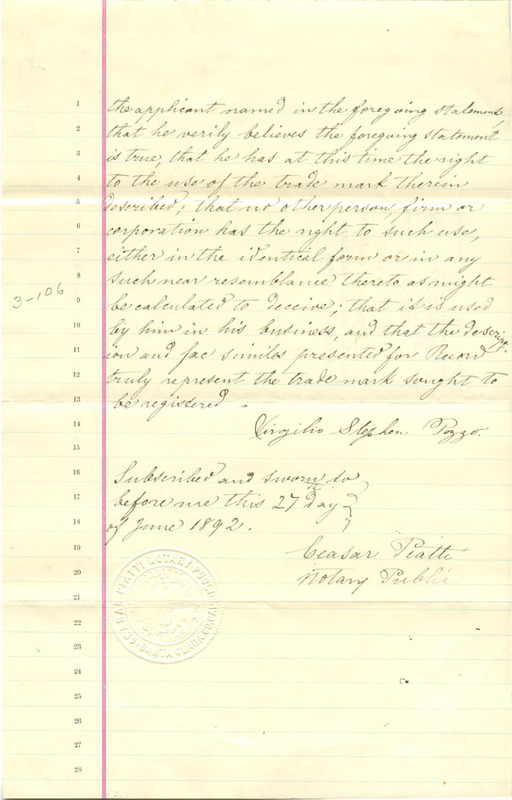 1 the applicant named in the foregoing statement,
2 that he verily believes the foregoing statement
3 is true, that he has at this time the right
4 to the use of the trade mark therein
5 described; that no other person, firm or
6 corporation has the right to such use,
7 either in the identical form or in any
8 such near resemblance thereto as might
3-106
9 be calculated to deceive; that it is used
10 by him in his business, and that the descript-
11 ion and fac similes presented for Record
12 truly represent the trade mark sought to
13 be registered.
14 Virgilio Stephen Pozzo.
15
16 Subscribed and sworn to
17 before me this 27th day
18 of June 1892.
19 Ceasar Piatti
20 Notary Public
21
22
23
24
25
26
27
28
CEASAR PIATTI NOTARY PUBLIC
SANTA CLARA COUNTY